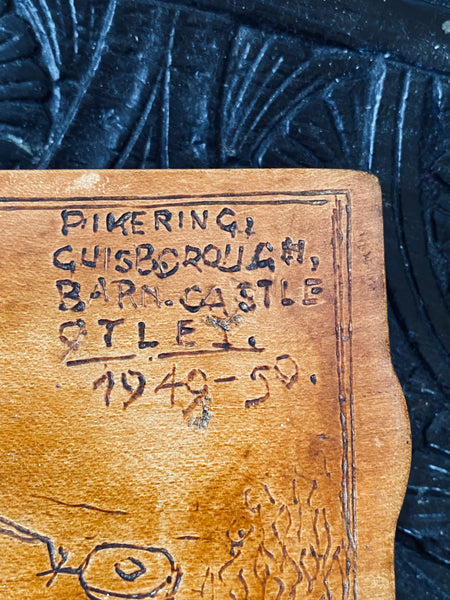 PIKERING,
GUISBOROUGH,
BARN.CASTLE
OTLEY.
1949-50.